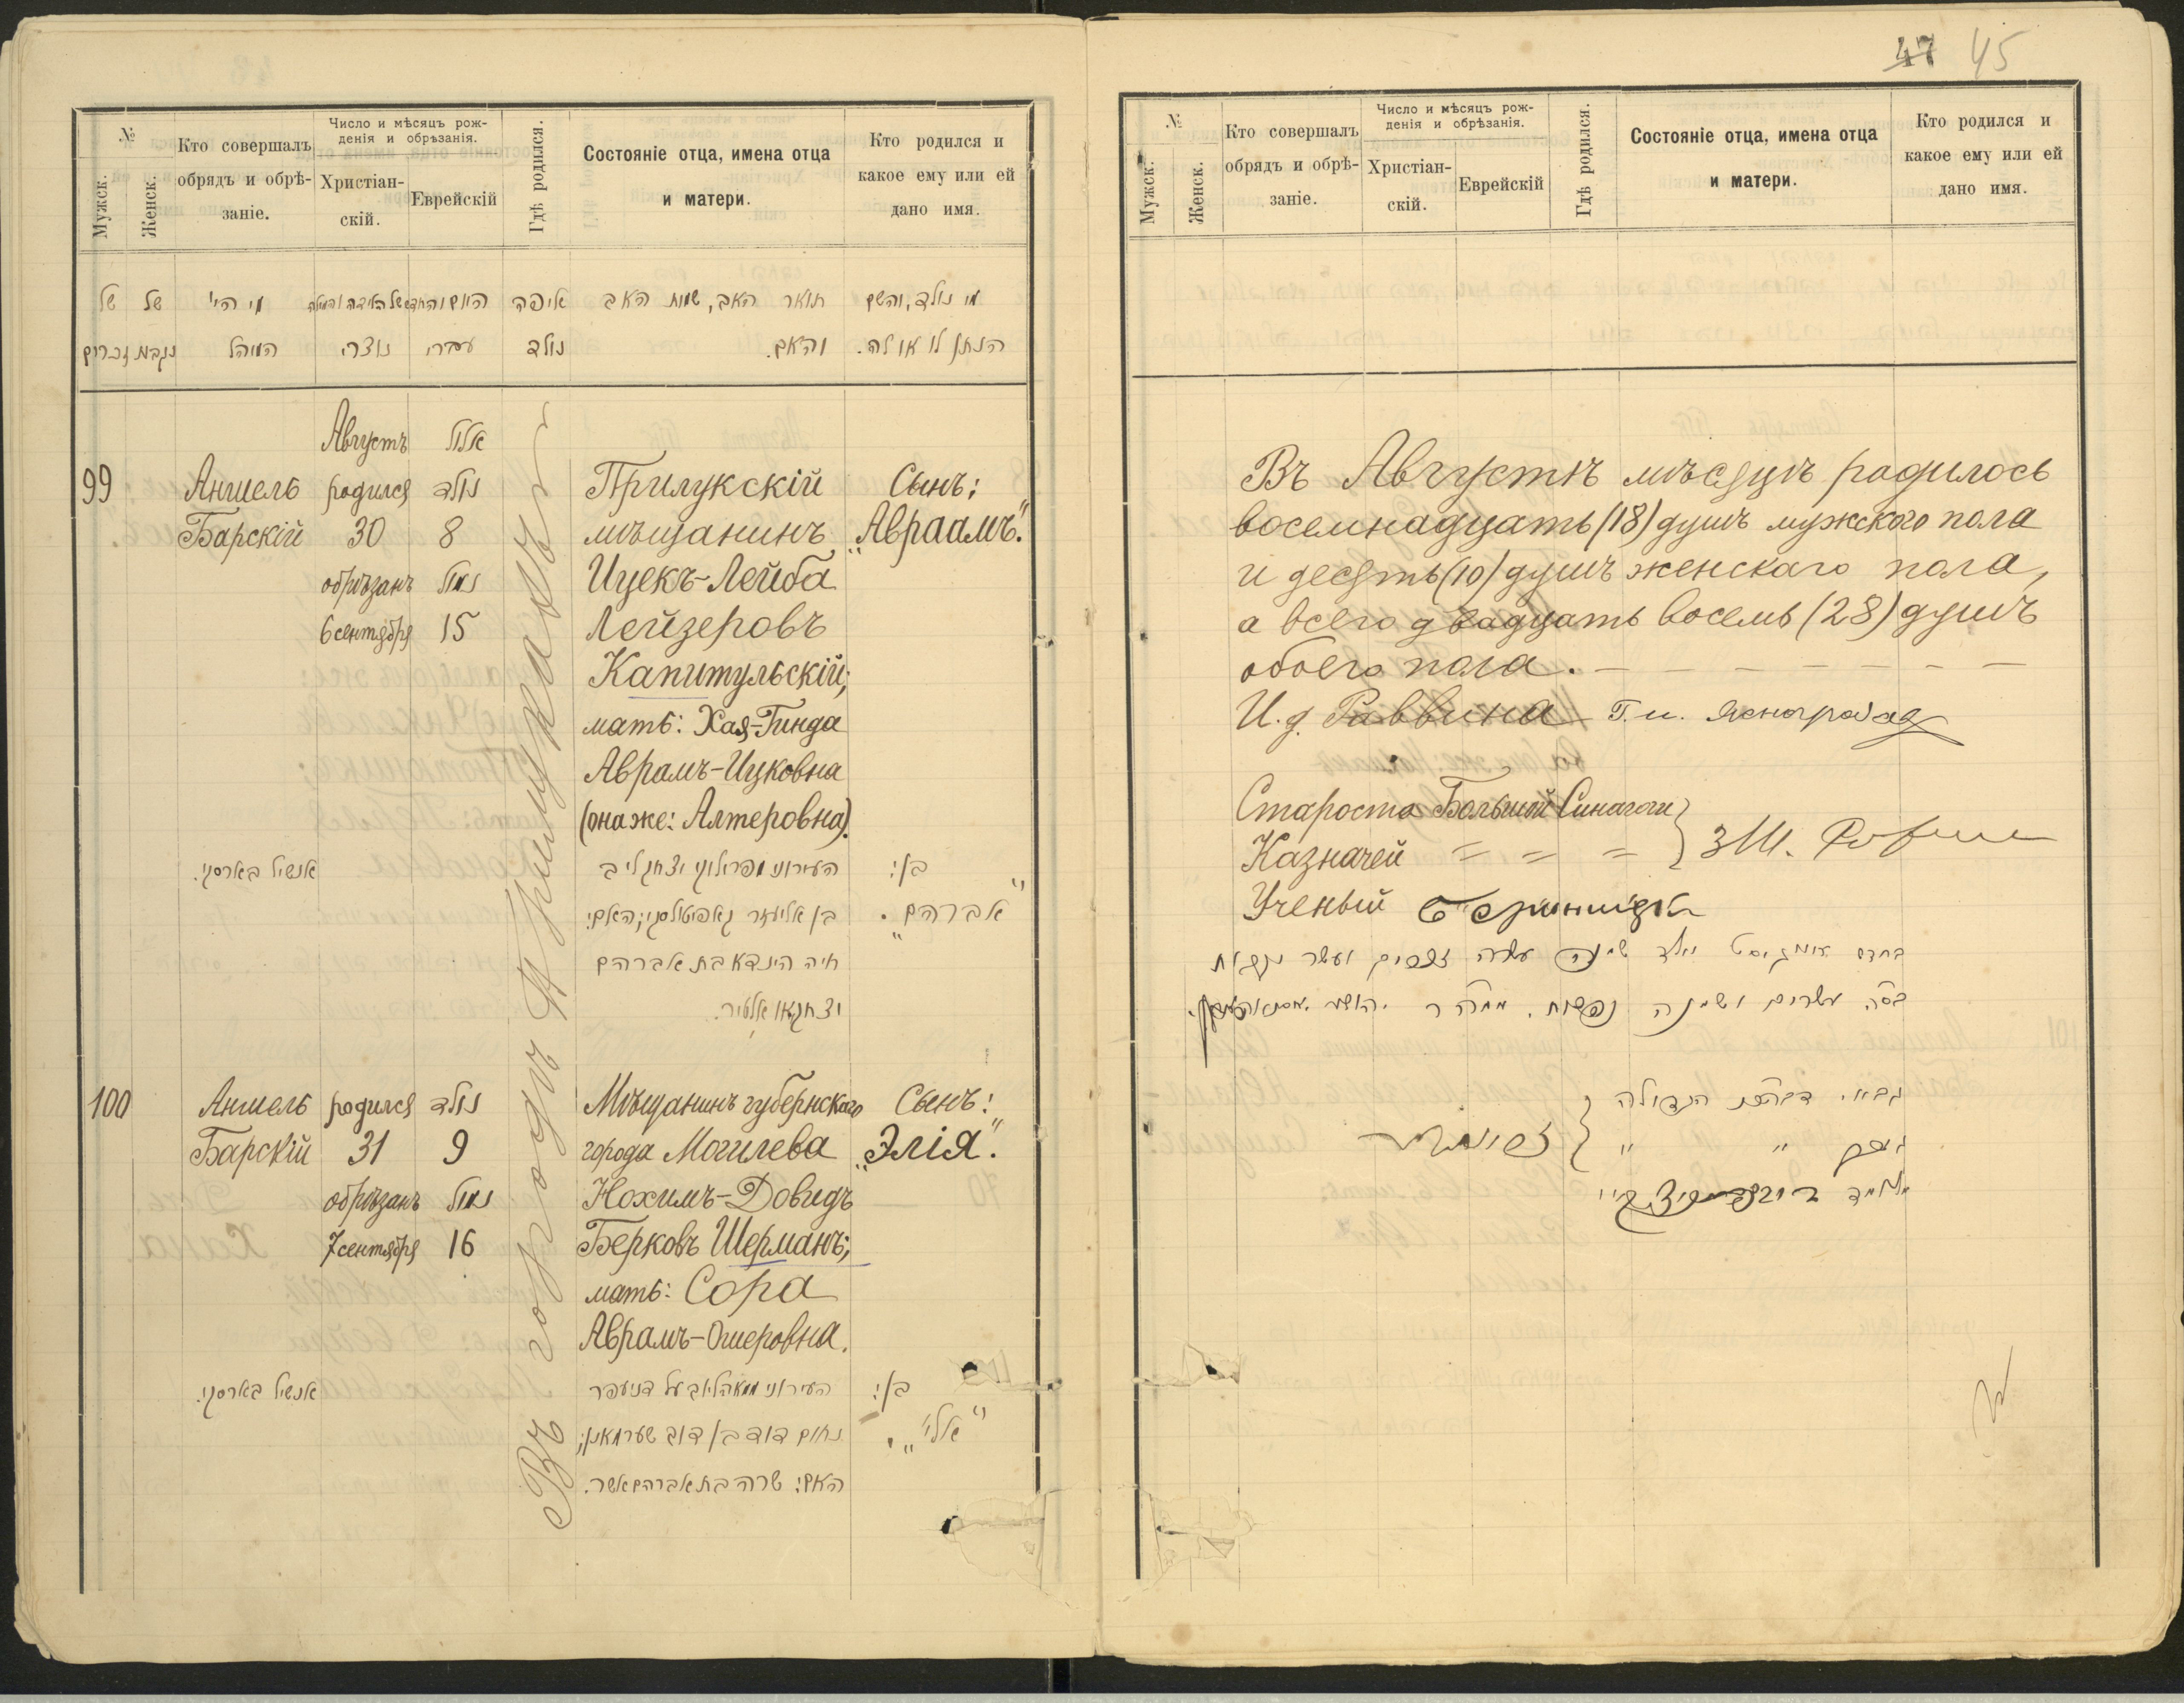 №
Мужск.
Женск.
Кто совершалъ
обрядъ и обрѣ-
заніе.
Число и мѣсяцъ рож-
денія и обрѣзанія.
Христіан-
скій.
Еврейскій
Гдѣ родился.
Состояніе отца, имена отца
и матери.
Кто родился и
какое ему или ей
дано имя.
של של מי הי' איפה תואר האב, שמות האב מי נולד, והשם
זכרים נקבות המוהל נוצרי עברי נולד והאם. הנתן לו או לה.
Августъ אלול
99
Аншель
Барскій
родился נולד
30 8
обрѣзанъ נמול
6 сентября 15
Въ городѣ Прилукахъ
Прилукскій
мѣщанинъ
Ицекъ-Лейба
Лейзеровъ
Капитульскій;
мать: Хая-Гинда
Аврамъ-Ицковна
(она же: Алтеровна).
Сынъ:
„Авраамъ".
אנשיל בארסקי.
העירוני מפרילוקי יצחק ליב
בן אליעזר קאפיטולסקי; האם:
חיה הינדא בת אברהם
יצחק או אלטיר.
בן:
„אברהם".
100
Аншель
Барскій
родился נולד
31 9
обрѣзанъ נמול
7 сентября 16
Мѣщанинъ губернскаго
города Могилева
Нохимъ-Довидъ
Берковъ Шерманъ;
мать: Сора
Аврамъ-Ошеровна.
Сынъ:
„Элія".
אנשיל בארסקי.
העירוני ממאהליוב על דניעפר
נחום דוד בן דוב שערמאן;
האם: שרה בת אברהם אשר.
בן:
„אלי'".
47 45
№
Мужск.
Женск.
Кто совершалъ
обрядъ и обрѣ-
заніе.
Число и мѣсяцъ рож-
денія и обрѣзанія.
Христіан-
скій.
Еврейскій
Гдѣ родился.
Состояніе отца, имена отца
и матери.
Кто родился и
какое ему или ей
дано имя.
Въ Августѣ мѣсяцѣ родилось
восемнадцать (18) душъ мужского пола
и десять (10) душъ женскаго пола,
а всего двадцать восемь (28) душъ
обоего пола. — — — — — — —
И. д. Раввина Г. и. Ясноградъ
Староста Большой Синагоги
Казначей = = =
Ученый
בחדש אויגוסט נולד שמנה עשרה זכרים ועשר נקבות
בסה עשרים ושמנה נפשות.
גבאי דבהכנ הגדולה
" "
מלמד